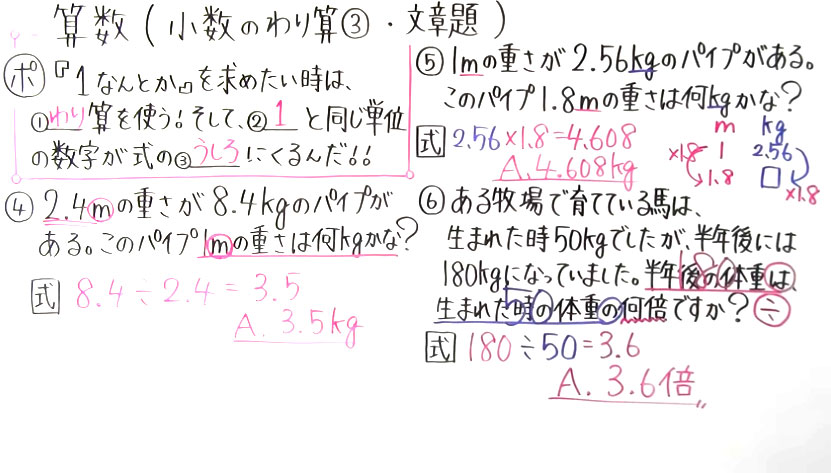 算数(小数のわり算③・文章題)
ポ『1なんとか』を求めたい時は、
①わり算を使う!そして、②1と同じ単位
の数字が式の③うしろにくるんだ!!
④2.4mの重さが8.4kgのパイプが
ある。このパイプ1mの重さは何kgかな?
式 8.4÷2.4=3.5
A. 3.5kg
⑤1mの重さが2.56kgのパイプがある。
このパイプ1.8mの重さは何kgかな?
式 2.56×1.8=4.608
A. 4.608kg
m kg
×1.8 1 2.56
1.8 □ ×1.8
⑥ある牧場で育てている馬は、
生まれた時50kgでしたが、半年後には
180kgになっていました。半年後の体重は、
180
生まれた時の体重の何倍ですか?÷
50
式 180÷50=3.6
A. 3.6倍